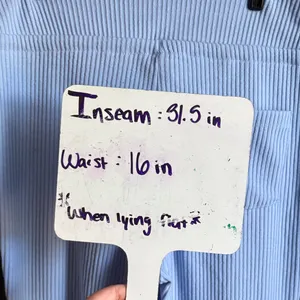 Inseam : 31.5 in
Waist : 16 in
*When lying flat*